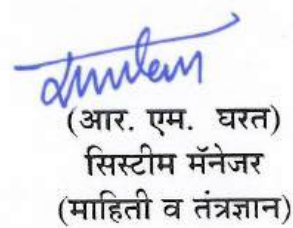 (आर. एम. घरत)
सिस्टीम मॅनेजर
(माहिती व तंत्रज्ञान)